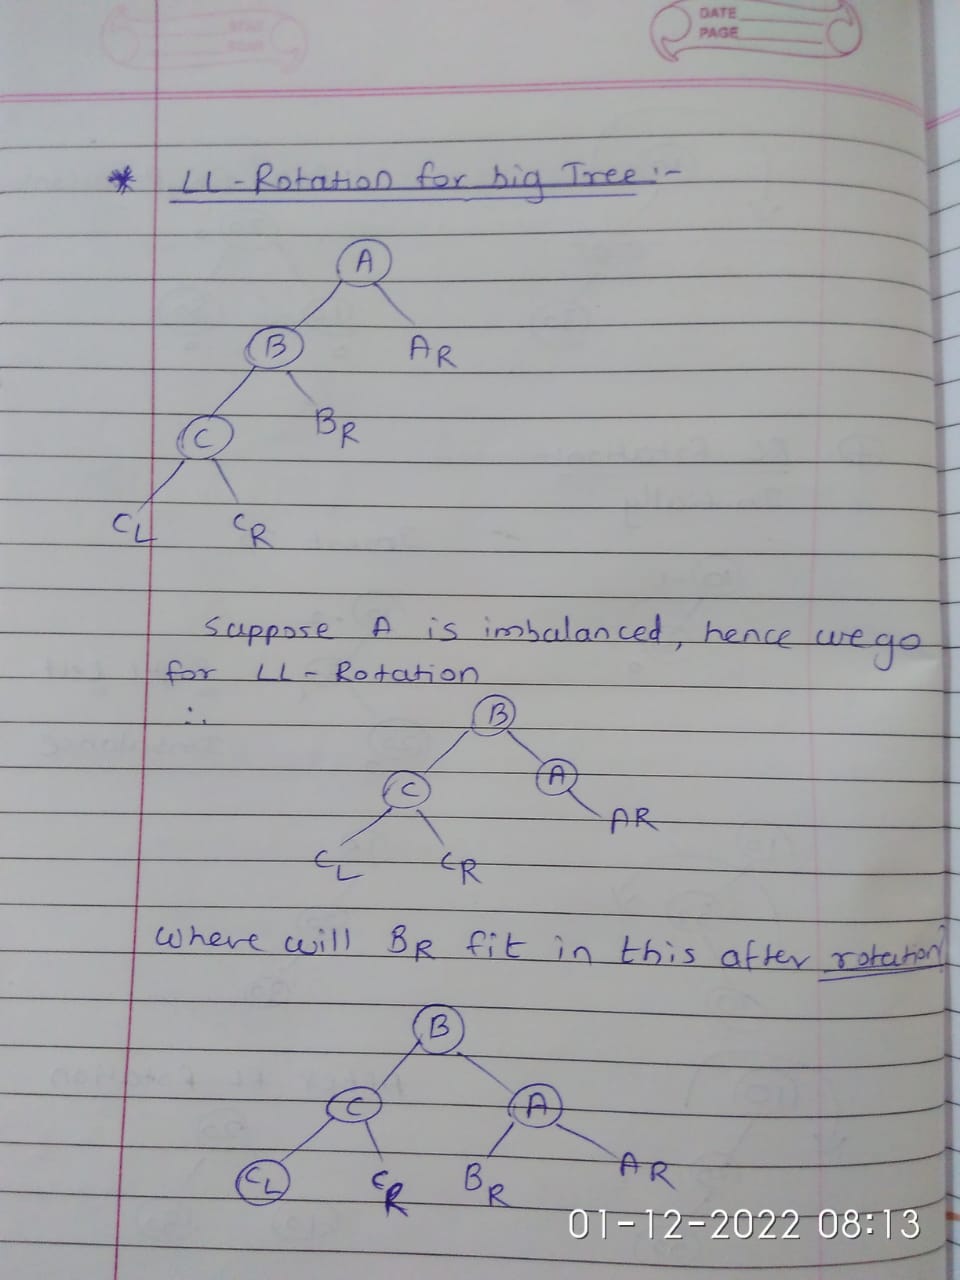 DATE
PAGE
* LL-Rotation for big Tree :-
A
B AR
C BR
CL CR
Suppose A is imbalanced, hence we go
for LL-Rotation
∴
B
C A
AR
CL CR
Where will BR fit in this after rotation?
B
C A
CL CR BR AR
01-12-2022 08:13